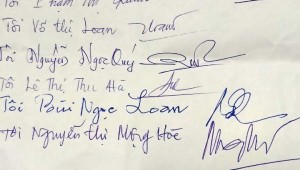 Tôi Võ thị Loan
Tôi Nguyễn Ngọc Quý
Tôi Lê Thị Thu Hà
Tôi Bùi Ngọc Loan
Tôi Nguyễn thị Mộng Hoè